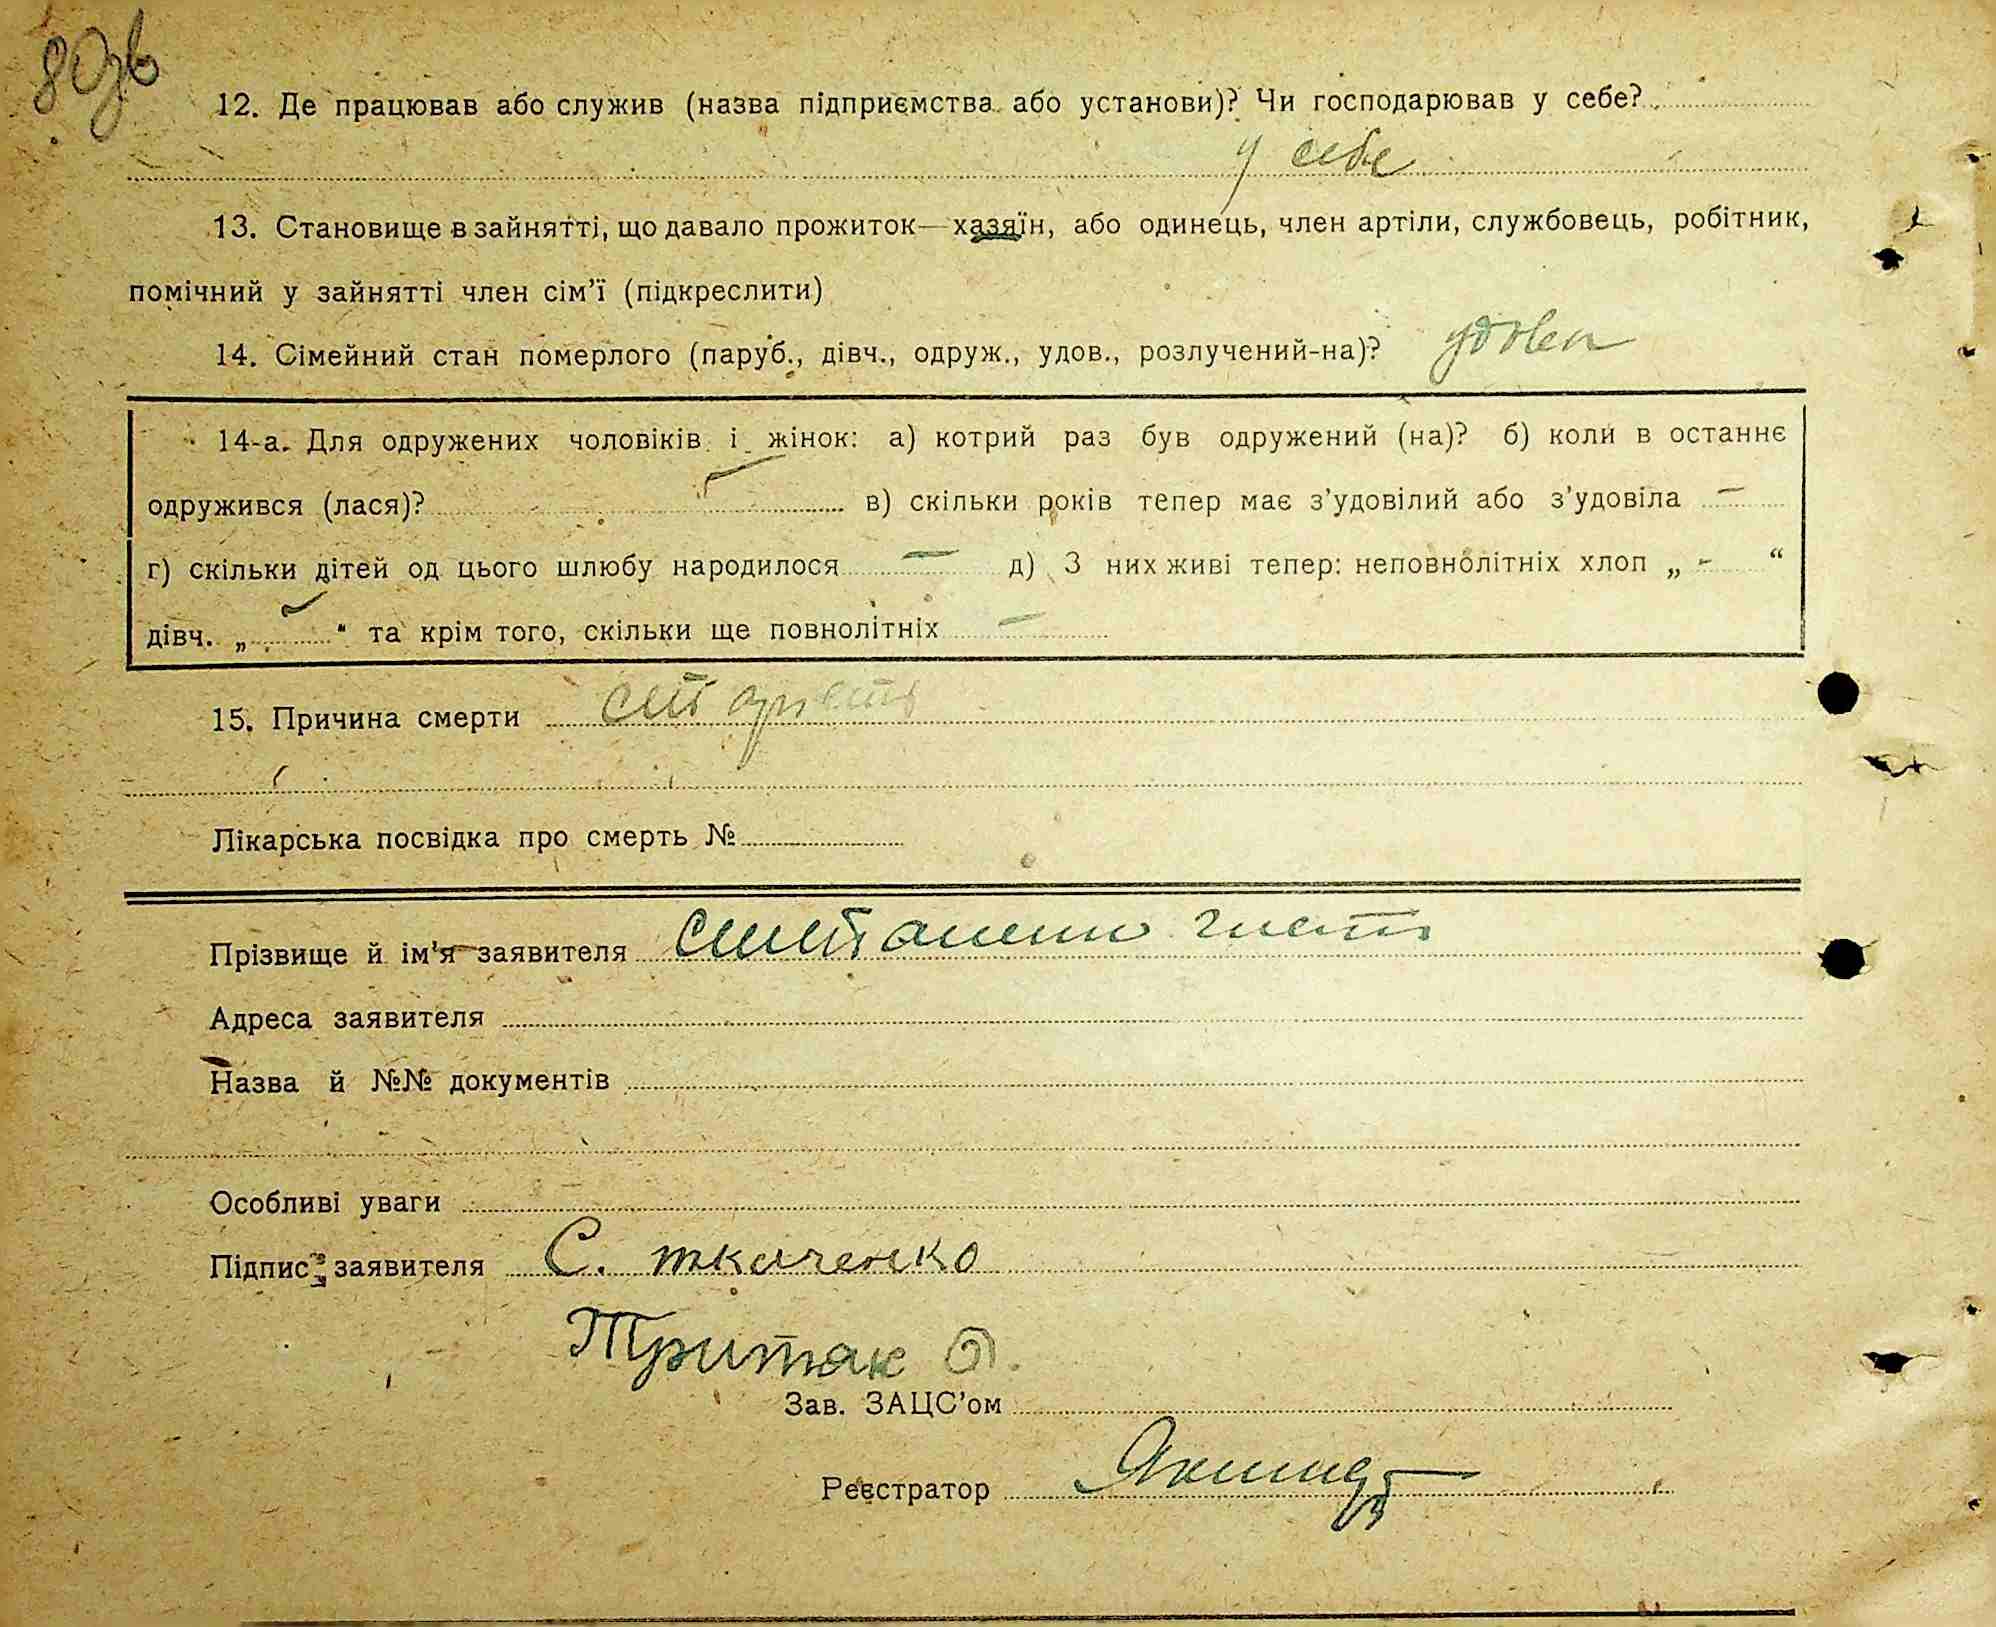 80зв
12. Де працював або служив (назва підприємства або установи)? Чи господарював у себе?
у себе
13. Становище в зайнятті, що давало прожиток—хазяїн, або одинець, член артіли, службовець, робітник,
помічний у зайнятті член сім’ї (підкреслити)
14. Сімейний стан померлого (паруб., дівч., одруж., удов., розлучений-на)? удовец
14-а. Для одружених чоловіків і жінок: а) котрий раз був одружений (на)? б) коли в останнє
одружився (лася)? — в) скільки років тепер має з’удовілий або з’удовіла —
г) скільки дітей од цього шлюбу народилося — д) З них живі тепер: неповнолітніх хлоп „ - “
дівч. „ — “ та крім того, скільки ще повнолітніх —
15. Причина смерти старість
Лікарська посвідка про смерть №
Прізвище й ім’я заявителя
Адреса заявителя
Назва й №№ документів
Особливі уваги
Підпис заявителя С. ткаченко
Тритяк
Зав. ЗАЦС’ом
Реєстратор